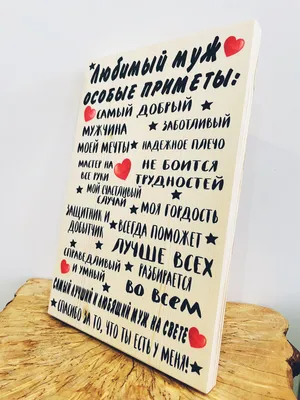 Любимый муж
особые приметы:
самый добрый
мужчина
заботливый
моей мечты
надежное плечо
мастер на
все руки
не боится
трудностей
мой счастливый
случай
моя гордость
защитник и
добытчик
всегда поможет
лучше всех
справедливый
и умный
разбирается
во всем
самый лучший и любящий муж на свете
спасибо за то, что ты есть у меня!